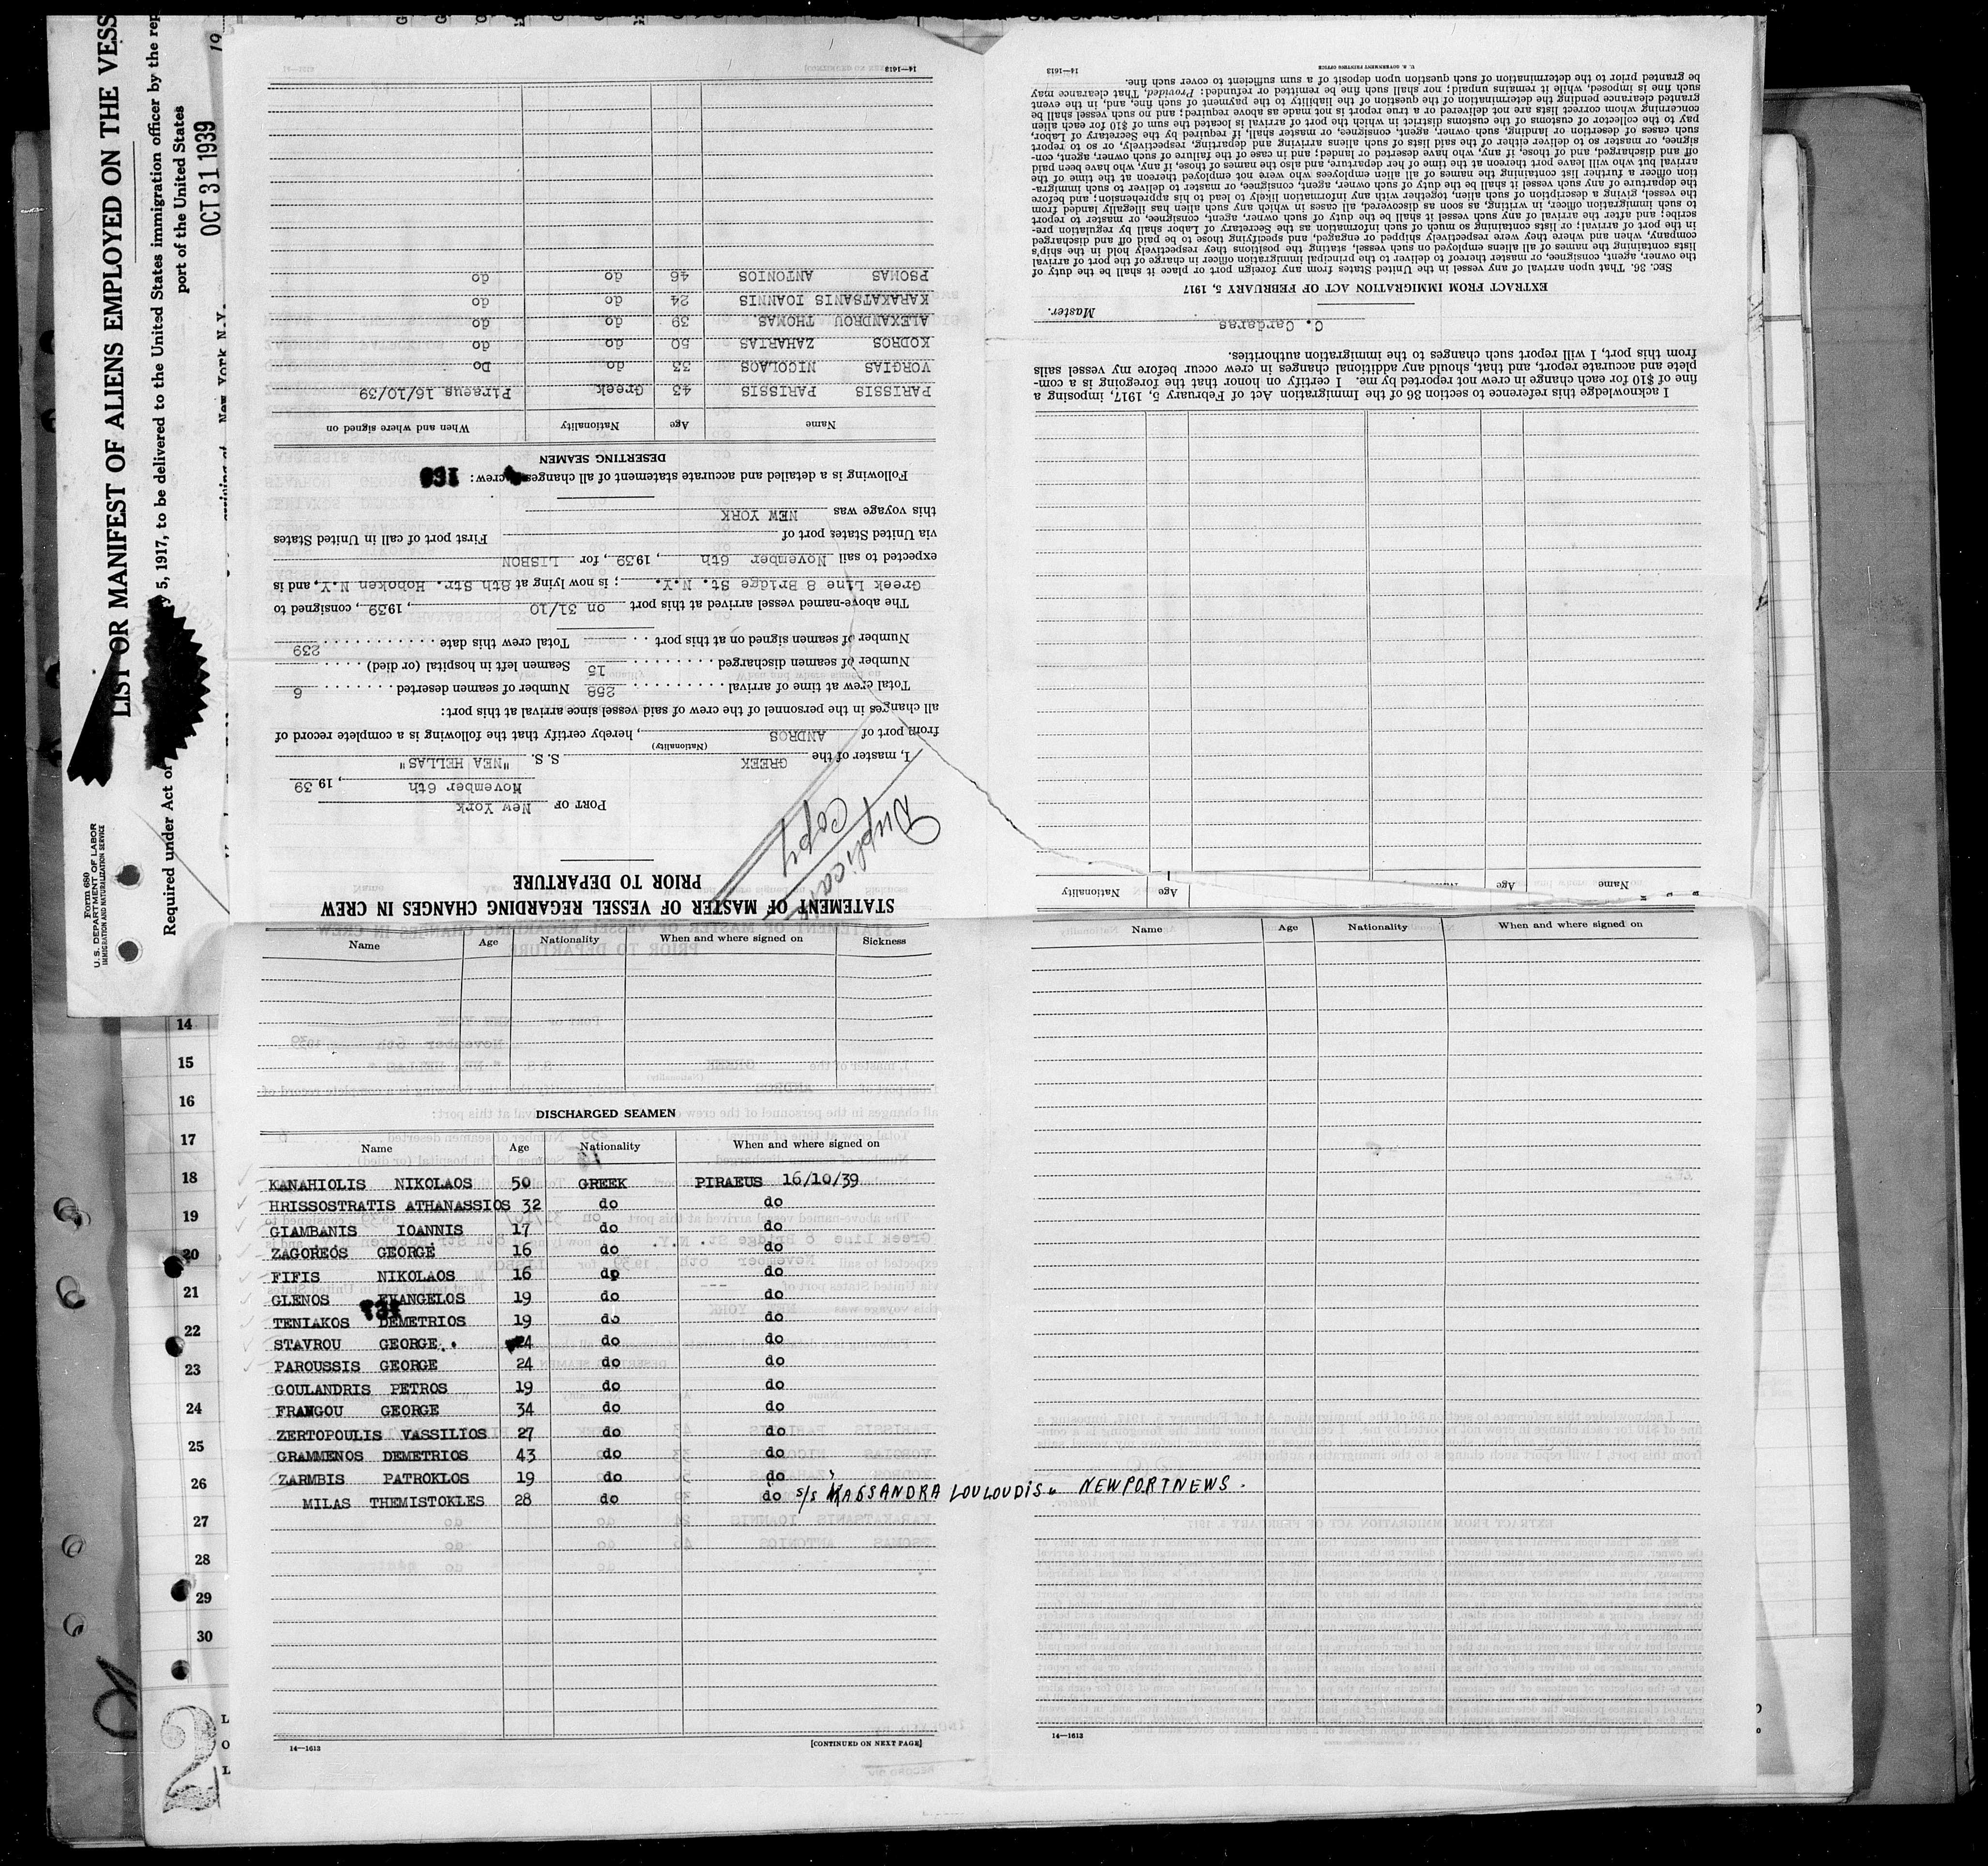 Form 680
U. S. DEPARTMENT OF LABOR
IMMIGRATION AND NATURALIZATION SERVICE
LIST OR MANIFEST OF ALIENS EMPLOYED ON THE VESS
Required under Act of
y 5, 1917, to be delivered to the United States immigration officer by the rep
port of the United States
OCT 31 1939
19
arriving at New York N.Y.
STATEMENT OF MASTER OF VESSEL REGARDING CHANGES IN CREW
PRIOR TO DEPARTURE
Duplicate
copy
PORT OF New York
November 6th, 1939
I, master of the GREEK S. S. "NEA HELLAS"
(Nationality)
from port of ANDROS, hereby certify that the following is a complete record of
all changes in the personnel of the crew of said vessel since arrival at this port:
Total crew at time of arrival 258 Number of seamen deserted 6
Number of seamen discharged 15 Seamen left in hospital (or died)
Number of seamen signed on at this port Total crew this date 239
The above-named vessel arrived at this port on 31/10, 1939, consigned to
Greek Line 8 Bridge St. N.Y.; is now lying at 8th Str. Hoboken N.Y, and is
expected to sail November 6th, 1939, for LISBON
via United States port of First port of call in United States
this voyage was NEW YORK
Following is a detailed and accurate statement of all changes crew:
DESERTING SEAMEN
Name Age Nationality When and where signed on
PARISSIS PARISSIS 43 Greek Piraeus 16/10/39
VORGIAS NICOLAOS 33 do Do
KODROS ZAHARIAS 50 do do
ALEXANDROU THOMAS. 39 do do
KARAKATSANIS IOANNIS 24 do do
PSOMAS ANTONIOS 46 do do
14—1613
Name Age Nationality
Name Age
I acknowledge this reference to section 36 of the Immigration Act of February 5, 1917, imposing a
fine of $10 for each change in crew not reported by me. I certify on honor that the foregoing is a com-
plete and accurate report, and that, should any additional changes in crew occur before my vessel sails
from this port, I will report such changes to the immigration authorities.
C. Cardaras
Master.
EXTRACT FROM IMMIGRATION ACT OF FEBRUARY 5, 1917
SEC. 36. That upon arrival of any vessel in the United States from any foreign port or place it shall be the duty of
the owner, agent, consignee, or master thereof to deliver to the principal immigration officer in charge of the port of arrival
lists containing the names of all aliens employed on such vessel, stating the positions they respectively hold in the ship's
company, when and where they were respectively shipped or engaged, and specifying those to be paid off and discharged
in the port of arrival; or lists containing so much of such information as the Secretary of Labor shall by regulation pre-
scribe; and after the arrival of any such vessel it shall be the duty of such owner, agent, consignee, or master to report
to such immigration officer, in writing, as soon as discovered, all cases in which any such alien has illegally landed from
the vessel, giving a description of such alien, together with any information likely to lead to his apprehension; and before
the departure of any such vessel it shall be the duty of such owner, agent, consignee, or master to deliver to such immigra-
tion officer a further list containing the names of all alien employees who were not employed thereon at the time of the
arrival but who will leave port thereon at the time of her departure, and also the names of those, if any, who have been paid
off and discharged, and of those, if any, who have deserted or landed; and in case of the failure of such owner, agent, con-
signee, or master so to deliver either of the said lists of such aliens arriving and departing, respectively, or so to report
such cases of desertion or landing, such owner, agent, consignee, or master shall, if required by the Secretary of Labor,
pay to the collector of customs of the customs district in which the port of arrival is located the sum of $10 for each alien
concerning whom correct lists are not delivered or a true report is not made as above required; and no such vessel shall be
granted clearance pending the determination of the question of the liability to the payment of such fine, and, in the event
such fine is imposed, while it remains unpaid; nor shall such fine be remitted or refunded: Provided, That clearance may
be granted prior to the determination of such question upon deposit of a sum sufficient to cover such fine.
U. S. GOVERNMENT PRINTING OFFICE 14—1613
Name Age Nationality When and where signed on Sickness
DISCHARGED SEAMEN
Name Age Nationality When and where signed on
KANAHIOLIS NIKOLAOS 50 GREEK PIRAEUS 16/10/39
HRISSOSTRATIS ATHANASSIOS 32 do do
GIAMBANIS IOANNIS 17 do do
ZAGOREOS GEORGE 16 do do
FIFIS NIKOLAOS 16 do do
GLENOS EVANGELOS 19 do do
TENIAKOS DEMETRIOS 19 do do
STAVROU GEORGE. 24 do do
PAROUSSIS GEORGE 24 do do
GOULANDRIS PETROS 19 do do
FRANGOU GEORGE 34 do do
ZERTOPOULIS VASSILIOS 27 do do
GRAMMENOS DEMETRIOS 43 do do
ZARMBIS PATROKLOS 19 do do
MILAS THEMISTOKLES 28 do do s/s KASSANDRA LOULOUDIS" NEWPORTNEWS.
14—1613 [CONTINUED ON NEXT PAGE]
Name Age Nationality When and where signed on
14—1613
14
15
16
17
18
19
20
21
22
23
24
25
26
27
28
29
30
2